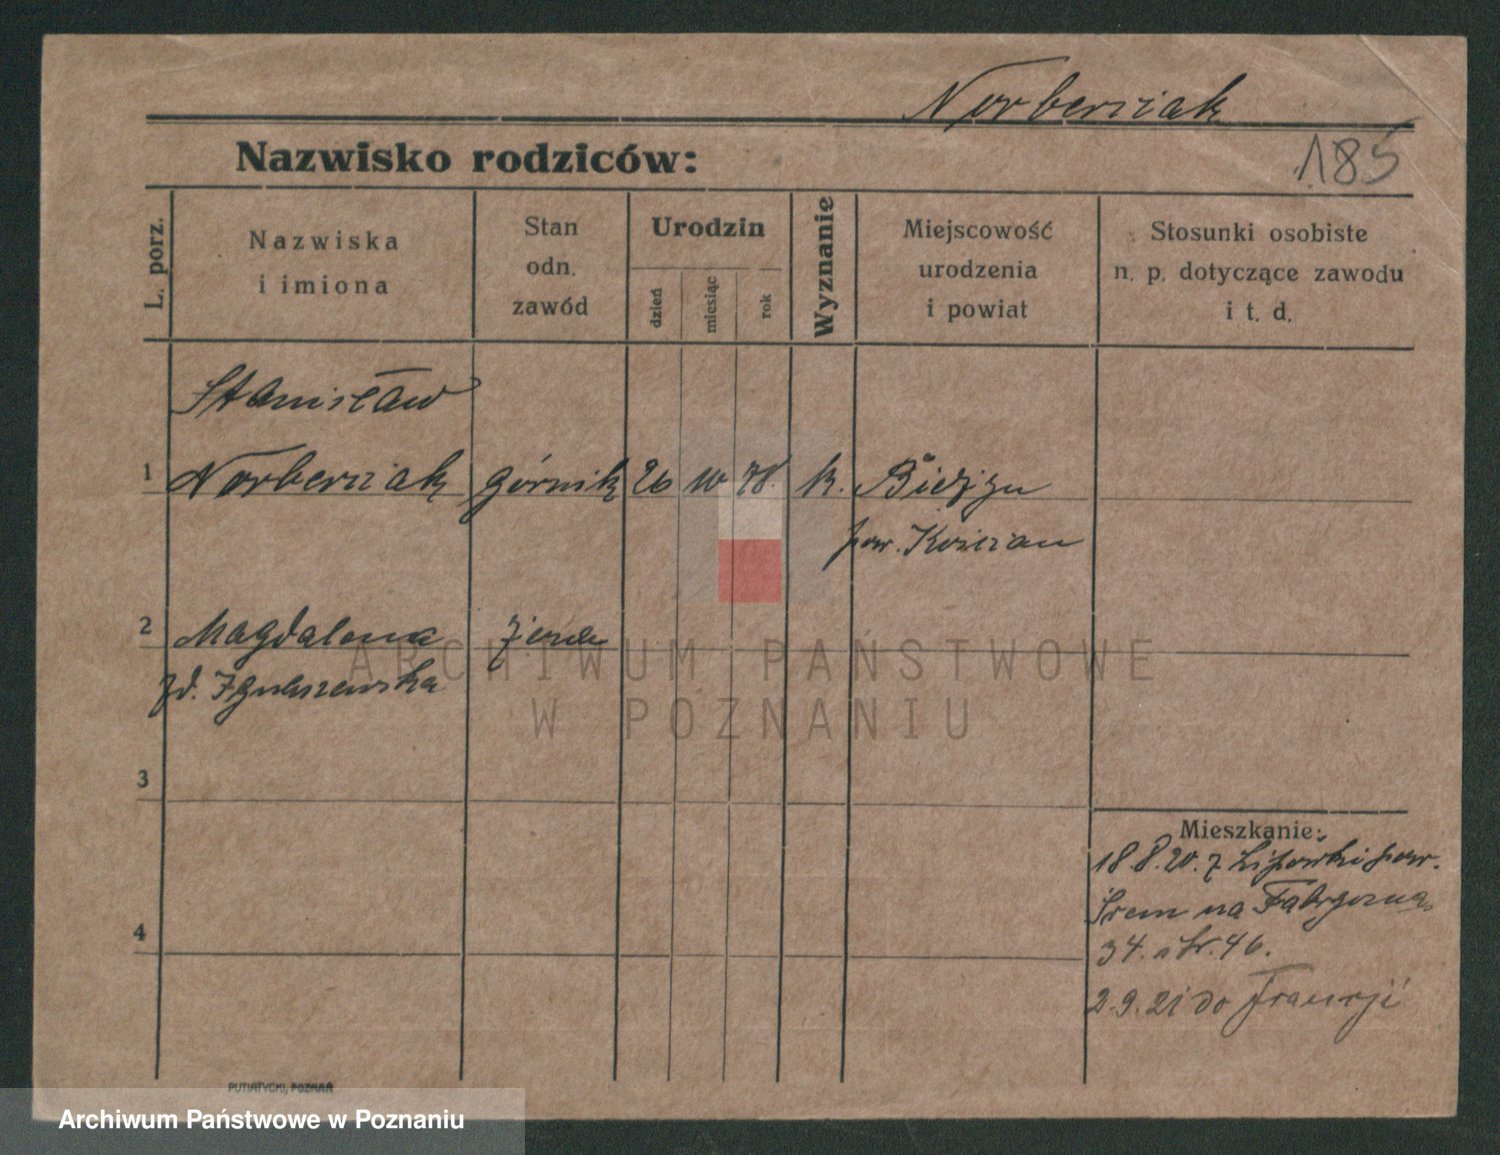 Norberciak
185
Nazwisko rodziców:
L. porz.
Nazwiska
i imiona
Stan
odn.
zawód
Urodzin
dzień
miesiąc
rok
Wyznanie
Miejscowość
urodzenia
i powiat
Stosunki osobiste
n. p. dotyczące zawodu
i t. d.
Stanisław
1 Norberciak górnik 26 10 78. k.
pow. Kościan
2 Magdalena żona
zd.
ARCHIWUM PAŃSTWOWE
W POZNANIU
3
Mieszkanie:
18.8.20. z pow.
4
Śrem na
34. 46.
2.9.21 do Francji
PUTIATYCKI, POZNAŃ
Archiwum Państwowe w Poznaniu